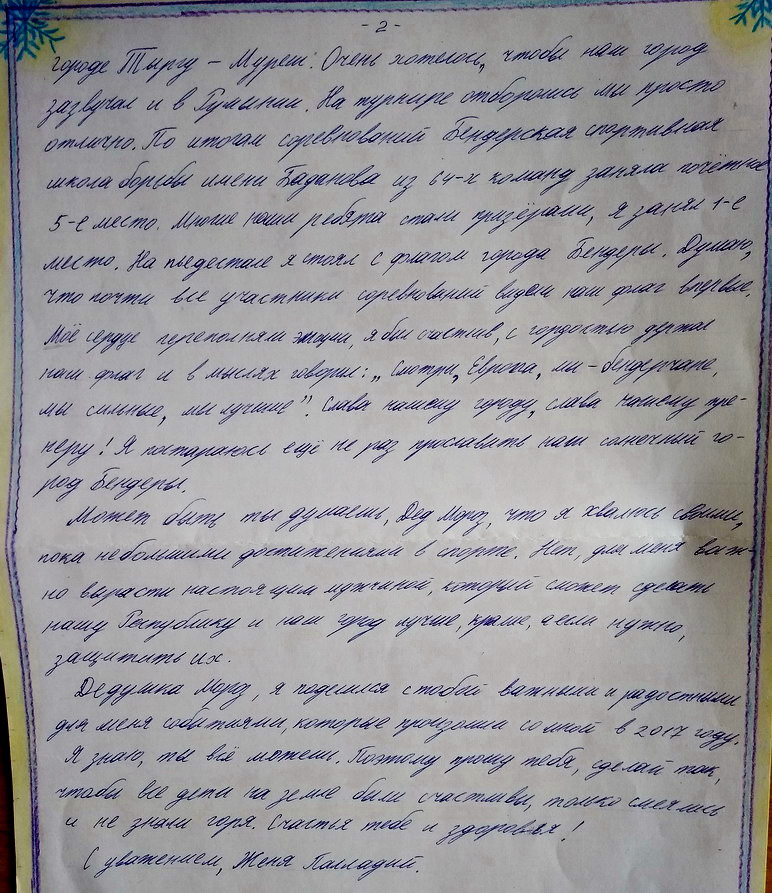 - 2 -
городе Тыргу - Муреш. Очень хотелось, чтобы наш город
зазвучал и в Румынии. На турнире отборолись мы просто
отлично. По итогам соревнований Бендерская спортивная
школа борьбы имени Баданова из 64-х команд заняла почётное
5-е место. Многие наши ребята стали призёрами, я занял 1-е
место. На пьедестале я стоял с флагом города Бендеры. Думаю,
что почти все участники соревнований видели наш флаг впервые.
Моё сердце переполняли эмоции, я был счастлив, с гордостью держал
наш флаг и в мыслях говорил: „Смотри, Европа, мы - бендерчане,
мы сильные, мы лучшие". Слава нашему городу, слава нашему тре-
неру! Я постараюсь ещё не раз прославить наш солнечный го-
род Бендеры.
Может быть ты думаешь, Дед Мороз, что я хвалюсь своими,
пока небольшими достижениями в спорте. Нет, для меня важ-
но вырасти настоящим мужчиной, который сможет сделать
нашу Республику и наш город лучше, краше, а если нужно,
защитить их.
Дедушка Мороз, я поделился с тобой важными и радостными
для меня событиями, которые произошли со мной в 2017 году.
Я знаю, ты всё можешь. Поэтому прошу тебя, сделай так,
чтобы все дети на земле были счастливы, только смеялись
и не знали горя. Счастья тебе и здоровья!
С уважением, Женя Палладий.